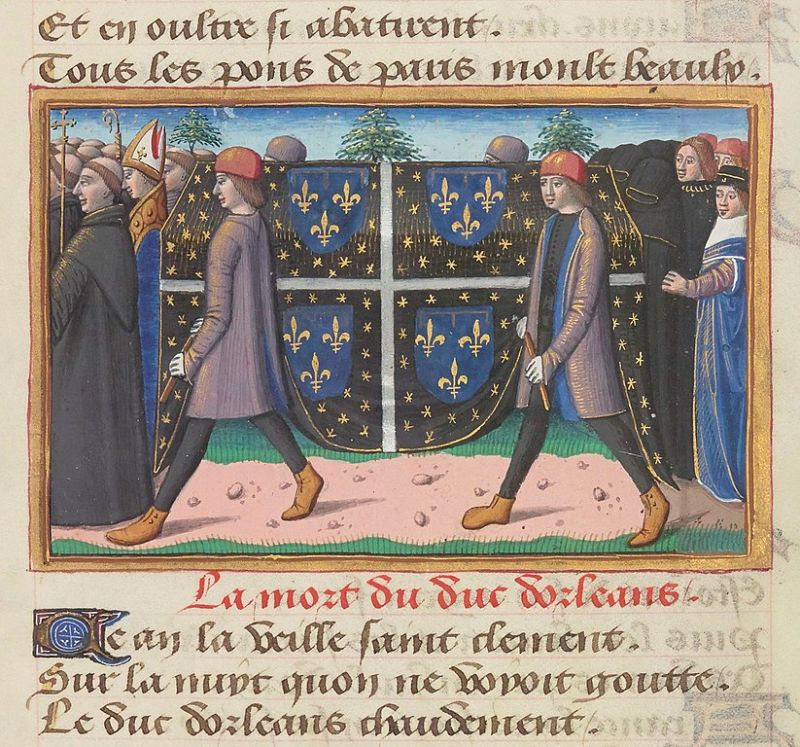 Et en oultre si abatirent.
Tous les pons de paris moult beaulx.
La mort du duc dorleans.
Le an la veille saint clement.
Sur la nuyt quon ne voyoit goutte.
Le duc dorleans chaudement.